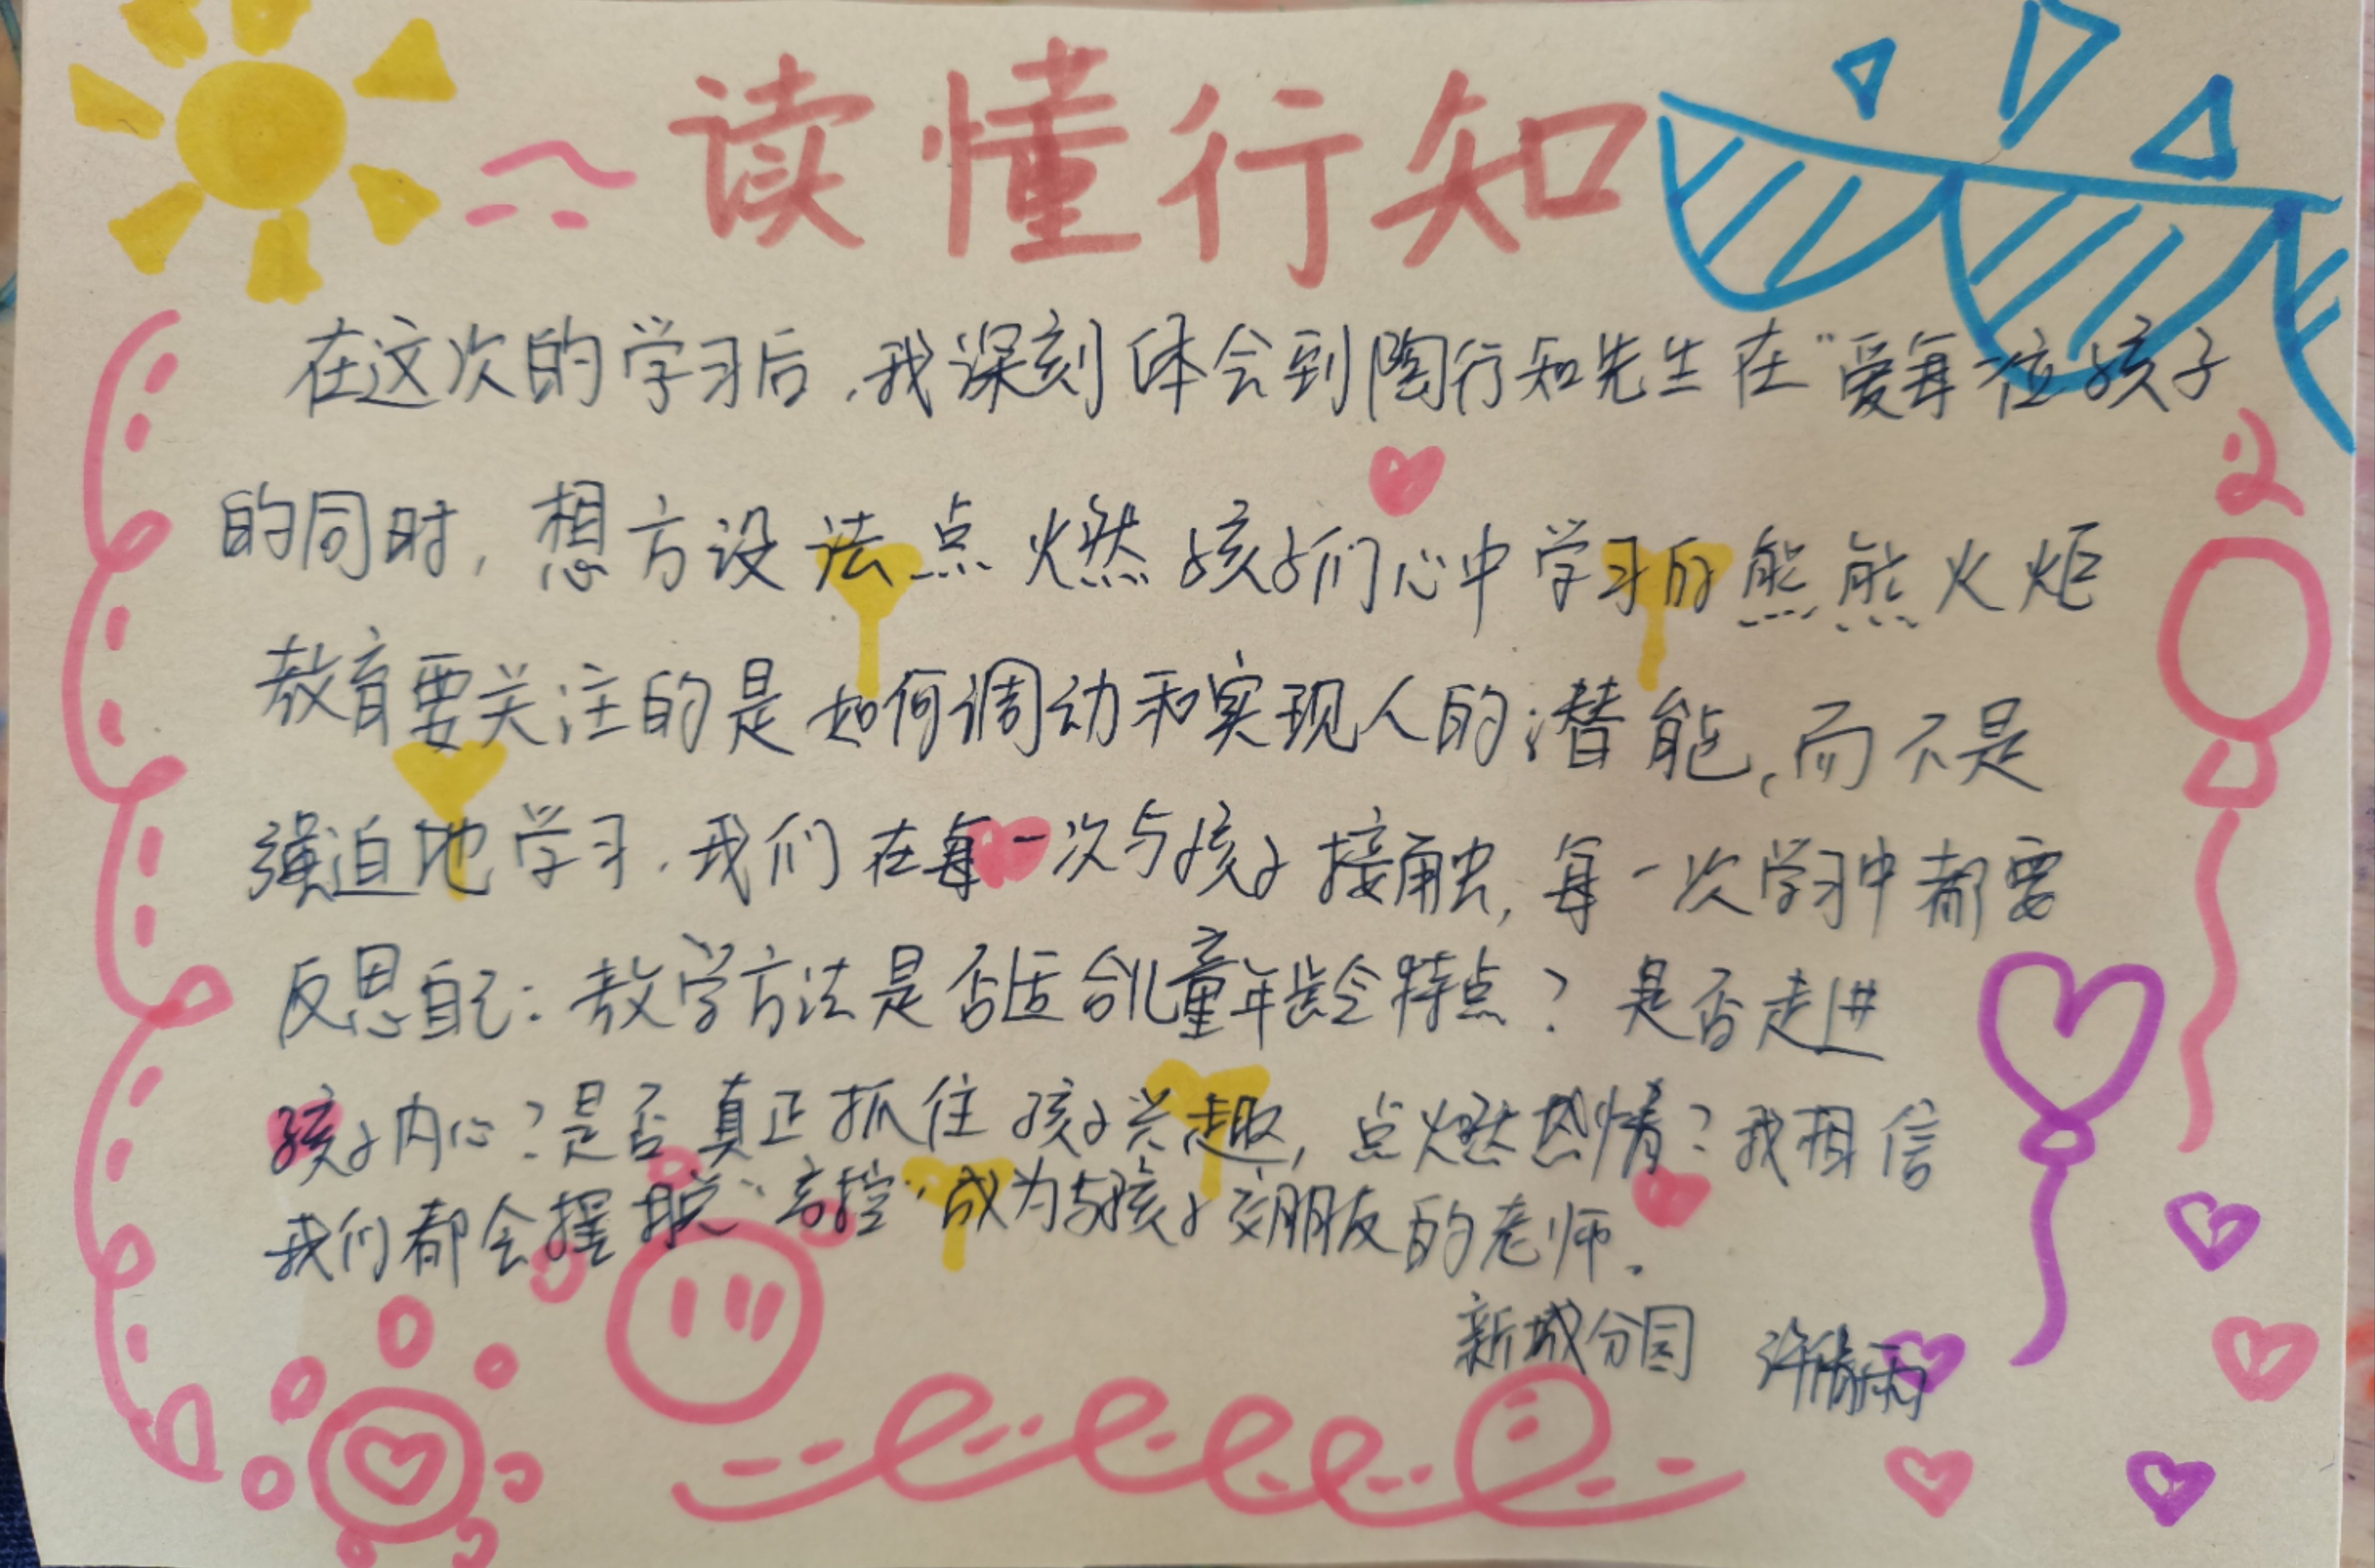 读懂行知
在这次的学习后,我深刻体会到陶行知先生在“爱每一位孩子
的同时,想方设法点燃孩子们心中学习的熊熊火炬
教育要关注的是如何调动和实现人的潜能,而不是
强迫地学习.我们在每一次与孩子接触,每一次学习中都要
反思自己:教学方法是否适合儿童年龄特点?是否走进
孩子内心?是否真正抓住孩子兴趣,点燃热情?我相信
我们都会摆脱“高控”成为与孩子交朋友的老师.
新城分园 许 雨